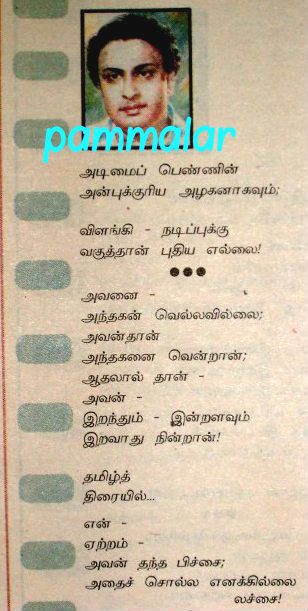 pammalar
அடிமைப் பெண்ணின்
அன்புக்குரிய அழகனாகவும்;
விளங்கி - நடிப்புக்கு
வகுத்தான் புதிய எல்லை!
●●●
அவனை -
அந்தகன் வெல்லவில்லை;
அவன்தான்
அந்தகனை வென்றான்;
ஆதலால் தான் -
அவன் -
இறந்தும் - இன்றளவும்
இறவாது நின்றான்!
தமிழ்த்
திரையில்...
என் -
ஏற்றம் -
அவன் தந்த பிச்சை;
அதைச் சொல்ல எனக்கில்லை
லச்சை!